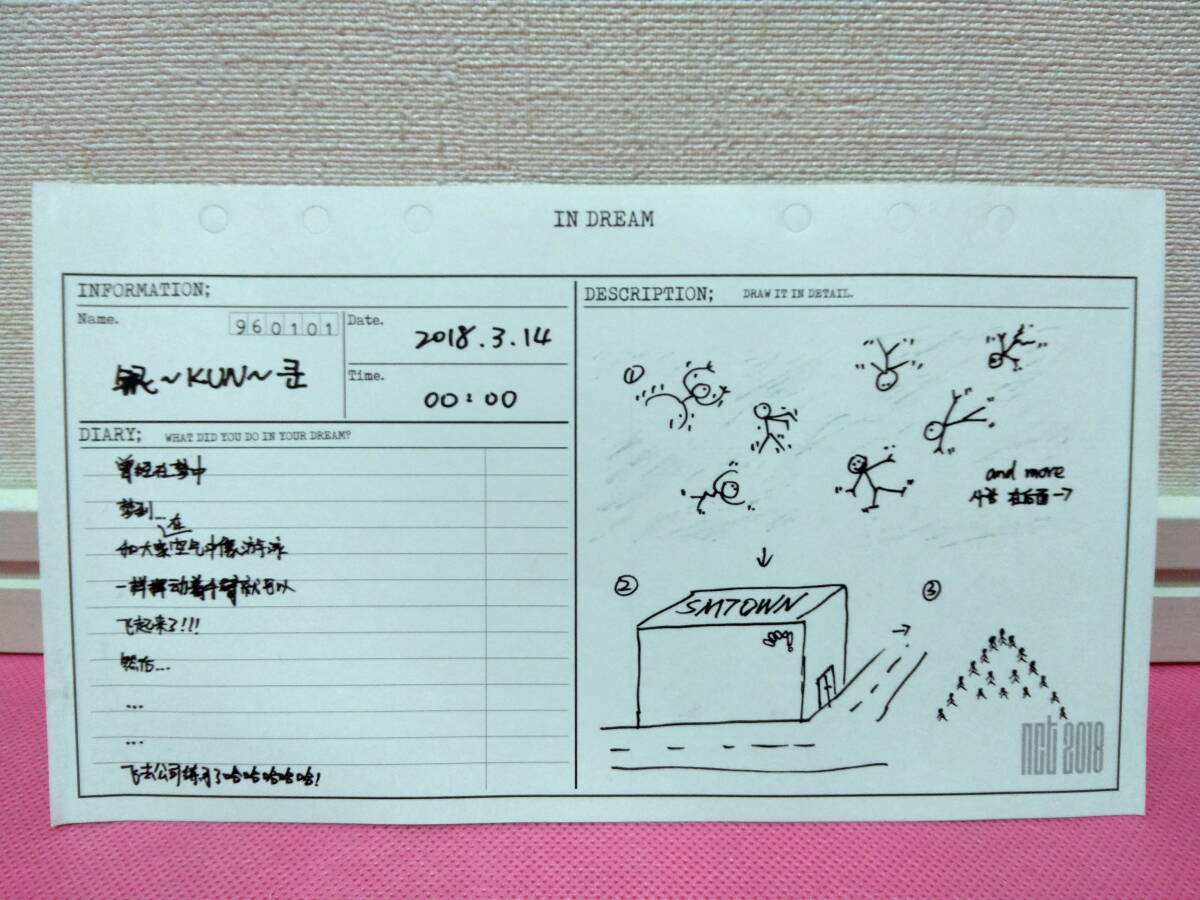 IN DREAM
INFORMATION;
Name.
960101
锟~KUN~쿤
Date.
2018.3.14
Time.
00:00
DIARY; WHAT DID YOU DO IN YOUR DREAM?
曾经在梦中
梦到...
和大家在空气中像游泳
一样挥动着手臂就可以
飞起来了!!!
然后...
...
...
飞去公司练习了哈哈哈哈哈!
DESCRIPTION; DRAW IT IN DETAIL.
①
and more
在后面→
②
SMTOWN
③
nct 2018